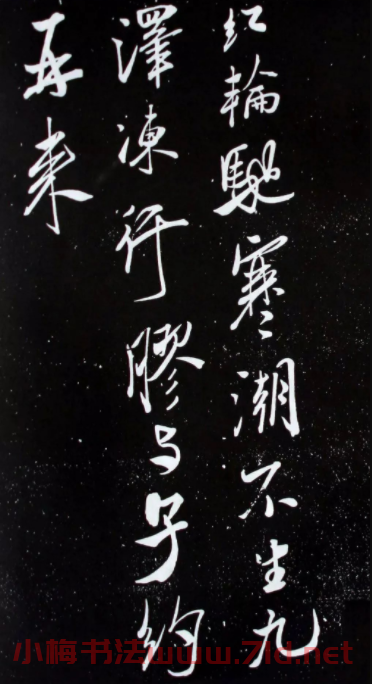 红輪馳寒潮不生九
澤凍行膠与子約
再来
小梅书法www.7id.net